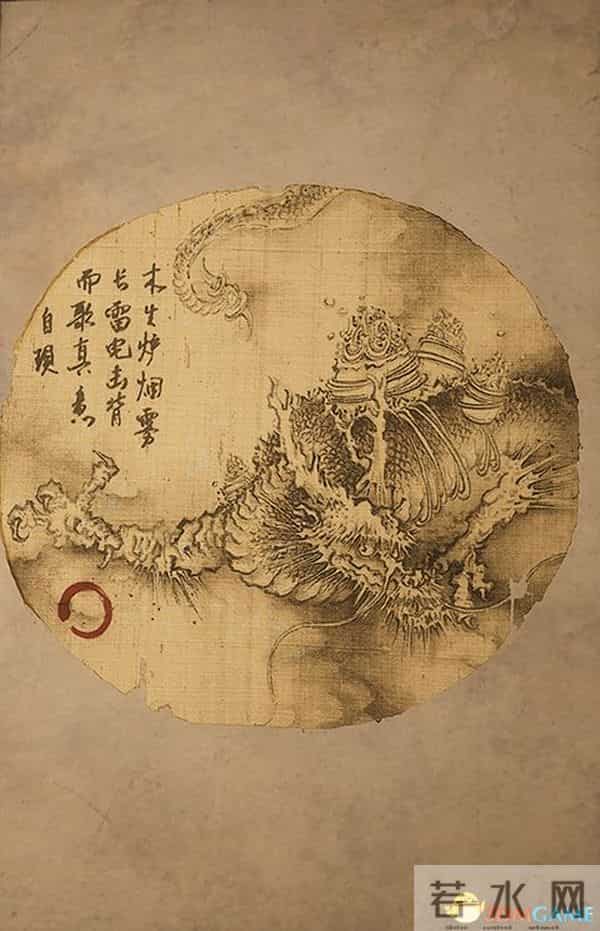 木生炉烟雾
长雷电击背
而歌真意
自
若水网
GAME